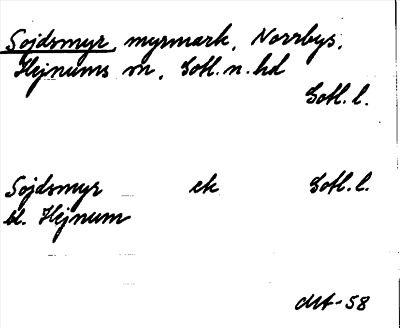 Sojdsmyr, myrmark, Norrbys,
Hejnums sn, Gotl. n. hd
Gotl. l.
Sojdsmyr ek Gotl. l.
bl. Hejnum
-58